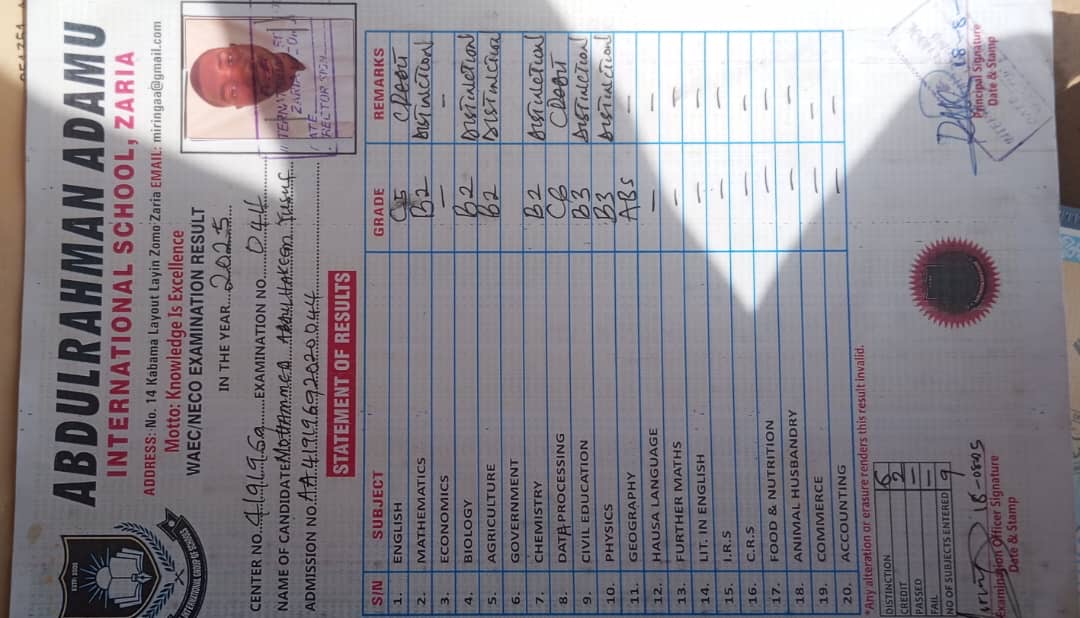 ABDULRAHMAN ADAMU
INTERNATIONAL SCHOOL, ZARIA
ADDRESS: No. 14 Kabama Layout Layin Zomo Zaria EMAIL: miringaa@gmail.com
Motto: Knowledge Is Excellence
WAEC/NECO EXAMINATION RESULT
IN THE YEAR 2025
CENTER NO. EXAMINATION NO. 044
NAME OF CANDIDATE Mohammed Abdulhakeem Yusuf
ADMISSION NO.
STATEMENT OF RESULTS
S/N SUBJECT GRADE REMARKS
1. ENGLISH CREDIT
2. MATHEMATICS B2 DISTINCTION
3. ECONOMICS — —
4. BIOLOGY B2 DISTINCTION
5. AGRICULTURE B2 DISTINCTION
6. GOVERNMENT
7. CHEMISTRY B2 DISTINCTION
8. DATA PROCESSING CREDIT
9. CIVIL EDUCATION B3 DISTINCTION
10. PHYSICS B3 DISTINCTION
11. GEOGRAPHY ABS —
12. HAUSA LANGUAGE — —
13. FURTHER MATHS — —
14. LIT. IN ENGLISH — —
15. I.R.S — —
16. C.R.S — —
17. FOOD & NUTRITION — —
18. ANIMAL HUSBANDRY — —
19. COMMERCE — —
20. ACCOUNTING — —
*Any alteration or erasure renders this result invalid.
DISTINCTION 6
CREDIT 2
PASSED —
FAIL —
NO OF SUBJECTS ENTERED 9
Examination Officer Signature
Date & Stamp
Principal Signature
Date & Stamp